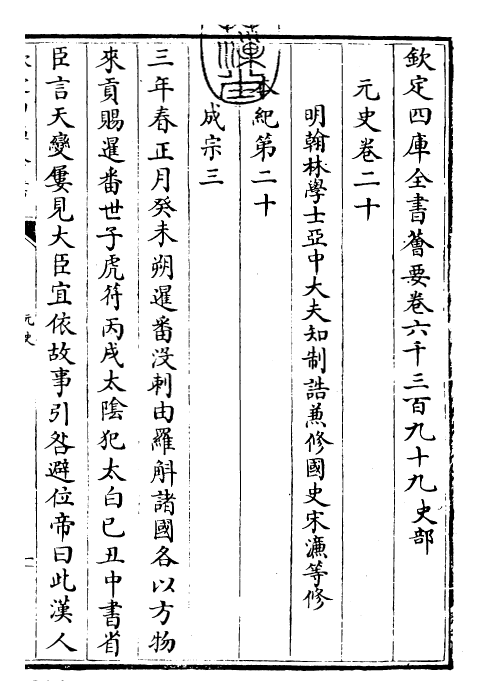 欽定四庫全書薈要卷六千三百九十九史部
元史卷二十
明翰林學士亞中大夫知制誥兼修國史宋濂等修
本紀第二十
成宗三
三年春正月癸未朔暹番沒剌由羅斛諸國各以方物
來貢賜暹番世子虎符丙戌太陰犯太白己丑中書省
臣言天變屢見大臣宜依故事引咎避位帝曰此漢人
元史